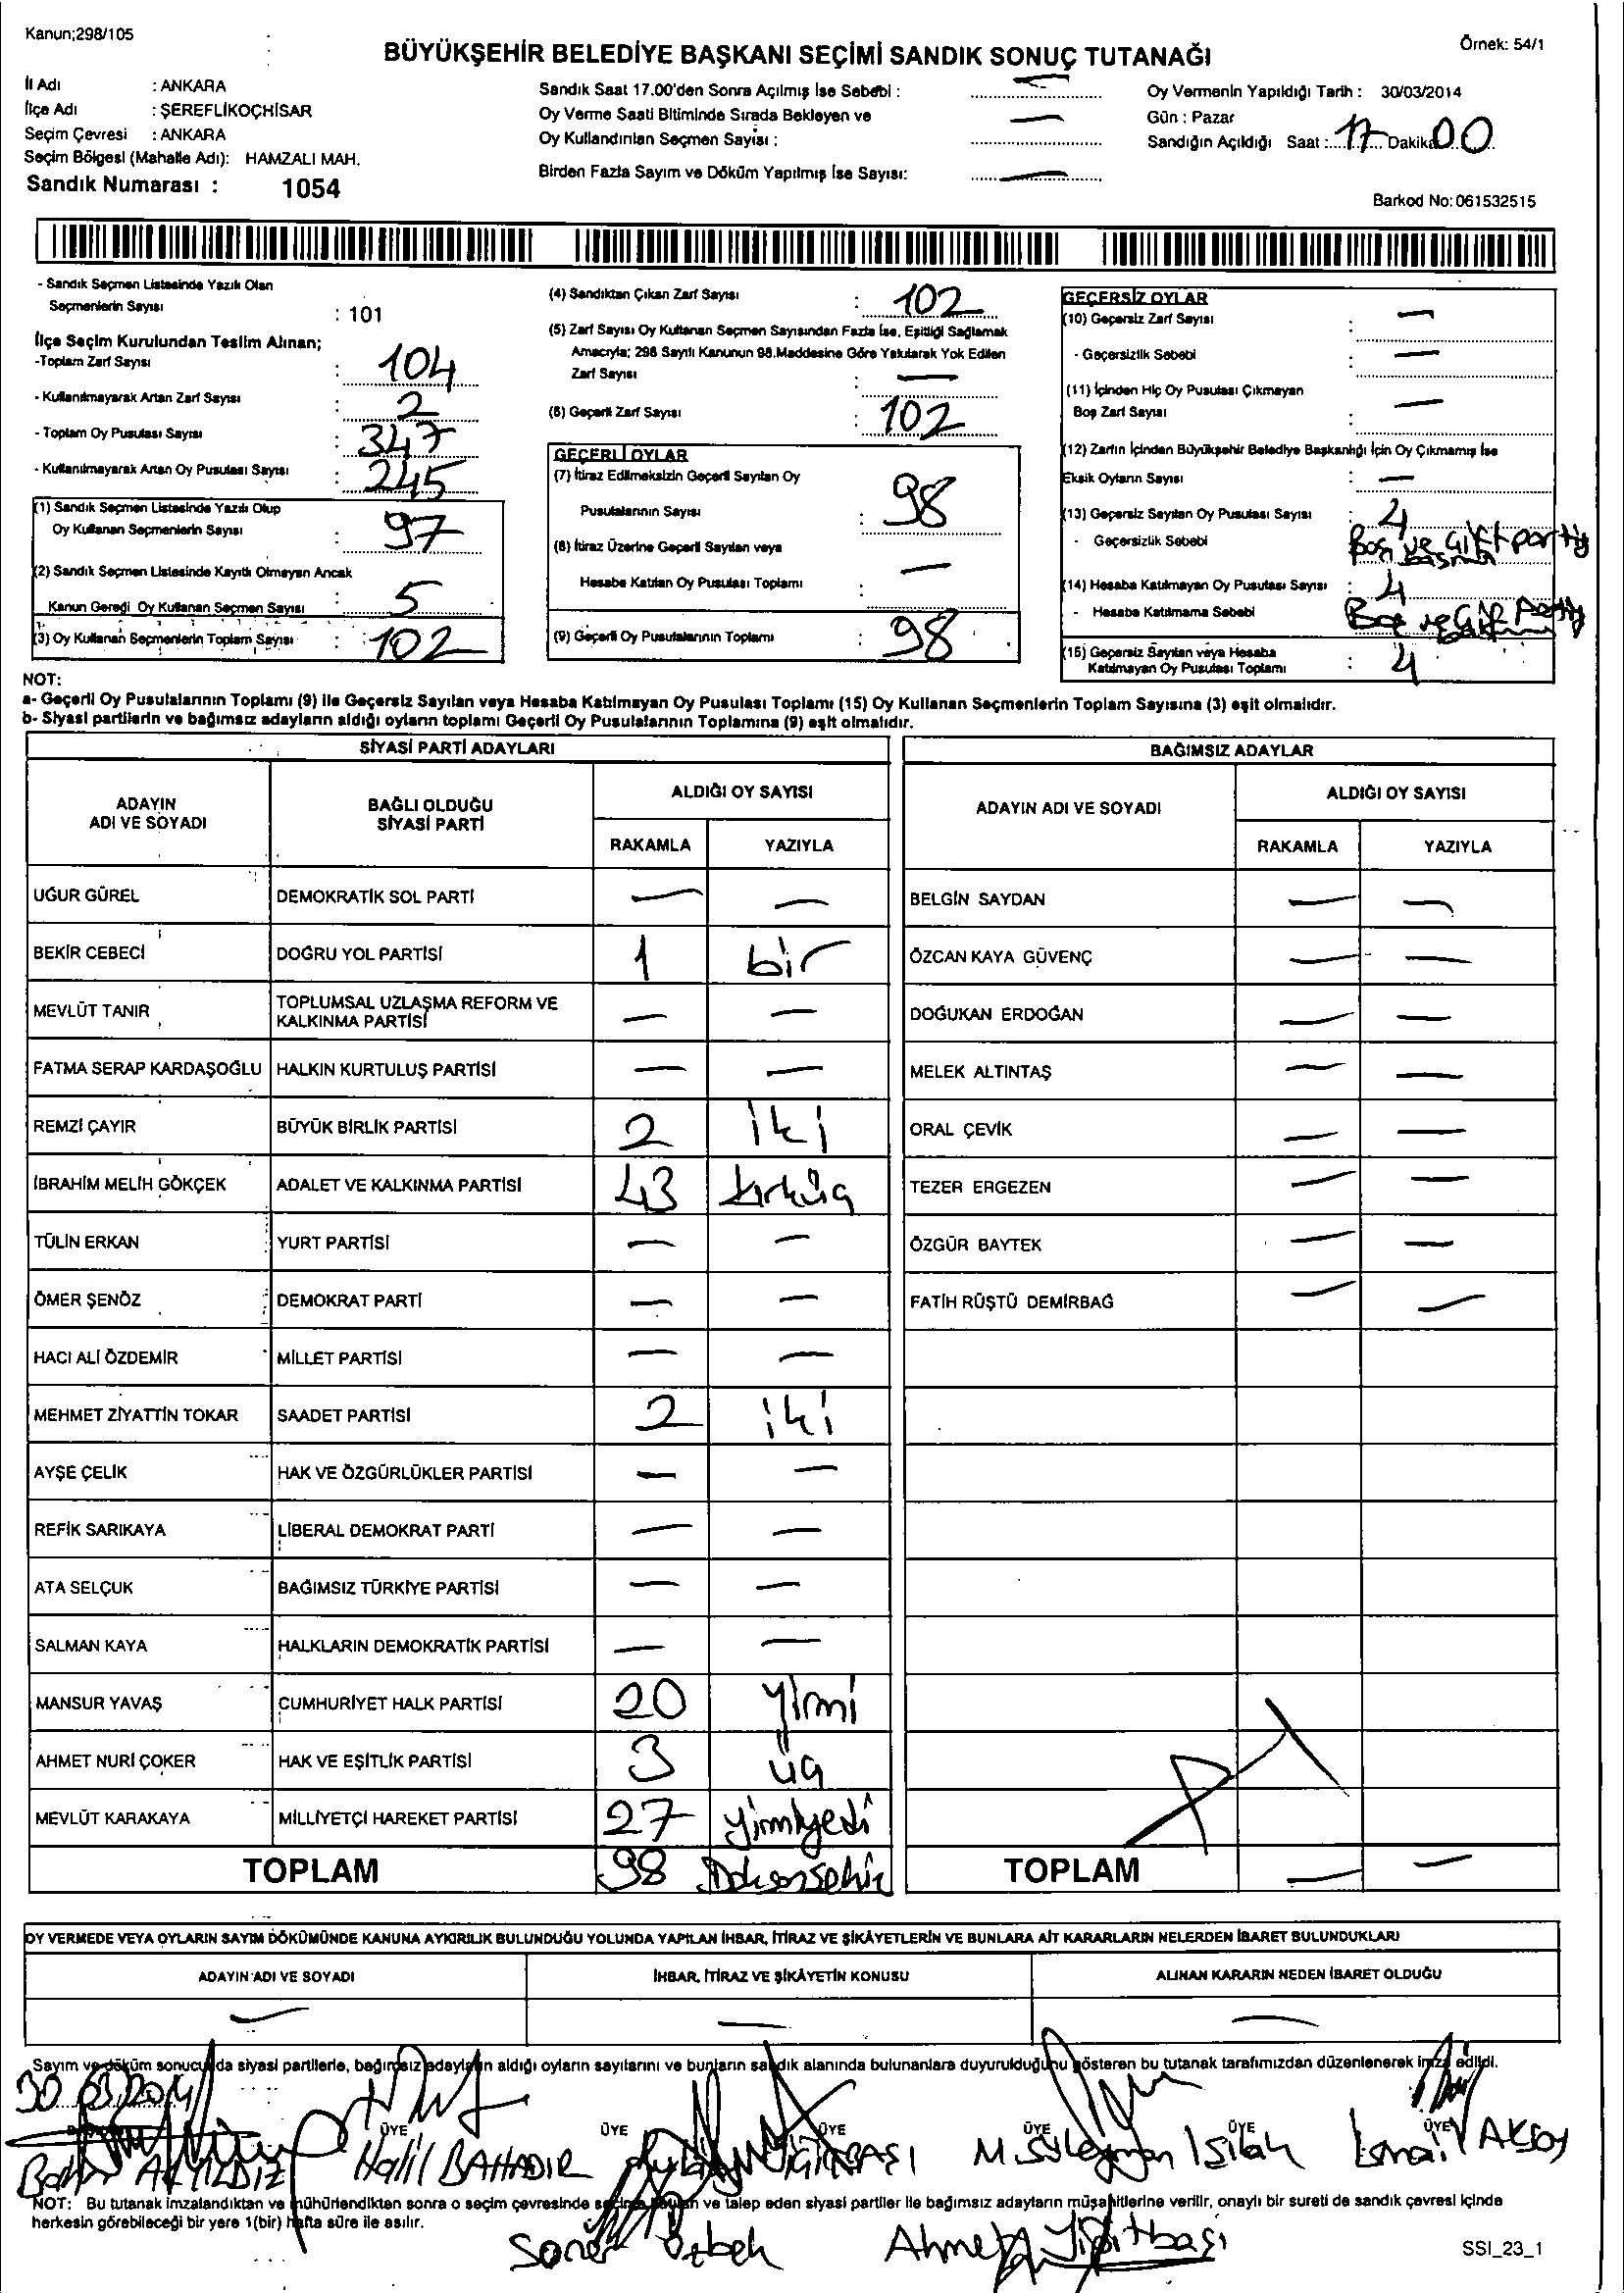 Kanun;298/105
BÜYÜKŞEHİR BELEDİYE BAŞKANI SEÇİMİ SANDIK SONUÇ TUTANAĞI
Örnek: 54/1
İl Adı : ANKARA
İlçe Adı : ŞEREFLİKOÇHİSAR
Seçim Çevresi : ANKARA
Seçim Bölgesi (Mahalle Adı): HAMZALI MAH.
Sandık Numarası : 1054
Sandık Saat 17.00'den Sonra Açılmış İse Sebebi : —
Oy Verme Saati Bitiminde Sırada Bekleyen ve
Oy Kullandırılan Seçmen Sayısı : —
Birden Fazla Sayım ve Döküm Yapılmış İse Sayısı: —
Oy Vermenin Yapıldığı Tarih : 30/03/2014
Gün : Pazar
Sandığın Açıldığı Saat : 17 Dakika 00
Barkod No: 061532515
- Sandık Seçmen Listesinde Yazılı Olan
Seçmenlerin Sayısı : 101
İlçe Seçim Kurulundan Teslim Alınan;
-Toplam Zarf Sayısı : 104
- Kullanılmayarak Artan Zarf Sayısı : 2
- Toplam Oy Pusulası Sayısı : 347
- Kullanılmayarak Artan Oy Pusulası Sayısı : 245
(1) Sandık Seçmen Listesinde Yazılı Olup
Oy Kullanan Seçmenlerin Sayısı : 97
(2) Sandık Seçmen Listesinde Kayıtlı Olmayan Ancak
Kanun Gereği Oy Kullanan Seçmen Sayısı : 5
(3) Oy Kullanan Seçmenlerin Toplam Sayısı : 102
(4) Sandıktan Çıkan Zarf Sayısı : 102
(5) Zarf Sayısı Oy Kullanan Seçmen Sayısından Fazla İse, Eşitliği Sağlamak
Amacıyla; 298 Sayılı Kanunun 98.Maddesine Göre Yakılarak Yok Edilen
Zarf Sayısı : —
(6) Geçerli Zarf Sayısı : 102
GEÇERLİ OYLAR
(7) İtiraz Edilmeksizin Geçerli Sayılan Oy
Pusulalarının Sayısı : 98
(8) İtiraz Üzerine Geçerli Sayılan veya
Hesaba Katılan Oy Pusulası Toplamı : —
(9) Geçerli Oy Pusulalarının Toplamı : 98
GEÇERSİZ OYLAR
(10) Geçersiz Zarf Sayısı : —
- Geçersizlik Sebebi : —
(11) İçinden Hiç Oy Pusulası Çıkmayan
Boş Zarf Sayısı : —
(12) Zarfın İçinden Büyükşehir Belediye Başkanlığı İçin Oy Çıkmamış İse
Eksik Oyların Sayısı : —
(13) Geçersiz Sayılan Oy Pusulası Sayısı : 4
- Geçersizlik Sebebi Boş ve çift partiy
(14) Hesaba Katılmayan Oy Pusulası Sayısı : 4
- Hesaba Katılmama Sebebi Boş ve çift partiy
(15) Geçersiz Sayılan veya Hesaba
Katılmayan Oy Pusulası Toplamı : 4
NOT:
a- Geçerli Oy Pusulalarının Toplamı (9) ile Geçersiz Sayılan veya Hesaba Katılmayan Oy Pusulası Toplamı (15) Oy Kullanan Seçmenlerin Toplam Sayısına (3) eşit olmalıdır.
b- Siyasi partilerin ve bağımsız adayların aldığı oyların toplamı Geçerli Oy Pusulalarının Toplamına (9) eşit olmalıdır.
SİYASİ PARTİ ADAYLARI
ADAYIN ADI VE SOYADI
BAĞLI OLDUĞU SİYASİ PARTİ
ALDIĞI OY SAYISI
RAKAMLA YAZIYLA
UĞUR GÜREL DEMOKRATİK SOL PARTİ — —
BEKİR CEBECİ DOĞRU YOL PARTİSİ 1 bir
MEVLÜT TANIR TOPLUMSAL UZLAŞMA REFORM VE KALKINMA PARTİSİ — —
FATMA SERAP KARDAŞOĞLU HALKIN KURTULUŞ PARTİSİ — —
REMZİ ÇAYIR BÜYÜK BİRLİK PARTİSİ 2 iki
İBRAHİM MELİH GÖKÇEK ADALET VE KALKINMA PARTİSİ 43 kırküç
TÜLİN ERKAN YURT PARTİSİ — —
ÖMER ŞENÖZ DEMOKRAT PARTİ — —
HACI ALİ ÖZDEMİR MİLLET PARTİSİ — —
MEHMET ZİYATTİN TOKAR SAADET PARTİSİ 2 iki
AYŞE ÇELİK HAK VE ÖZGÜRLÜKLER PARTİSİ — —
REFİK SARIKAYA LİBERAL DEMOKRAT PARTİ — —
ATA SELÇUK BAĞIMSIZ TÜRKİYE PARTİSİ — —
SALMAN KAYA HALKLARIN DEMOKRATİK PARTİSİ — —
MANSUR YAVAŞ CUMHURİYET HALK PARTİSİ 20 yirmi
AHMET NURİ ÇOKER HAK VE EŞİTLİK PARTİSİ 3 üç
MEVLÜT KARAKAYA MİLLİYETÇİ HAREKET PARTİSİ 27 yirmiyedi
TOPLAM 98 Doksansekiz
BAĞIMSIZ ADAYLAR
ADAYIN ADI VE SOYADI
ALDIĞI OY SAYISI
RAKAMLA YAZIYLA
BELGİN SAYDAN — —
ÖZCAN KAYA GÜVENÇ — —
DOĞUKAN ERDOĞAN — —
MELEK ALTINTAŞ — —
ORAL ÇEVİK — —
TEZER ERGEZEN — —
ÖZGÜR BAYTEK — —
FATİH RÜŞTÜ DEMİRBAĞ — —
TOPLAM — —
OY VERMEDE VEYA OYLARIN SAYIM DÖKÜMÜNDE KANUNA AYKIRILIK BULUNDUĞU YOLUNDA YAPILAN İHBAR, İTİRAZ VE ŞİKÂYETLERİN VE BUNLARA AİT KARARLARIN NELERDEN İBARET BULUNDUKLARI
ADAYIN ADI VE SOYADI İHBAR, İTİRAZ VE ŞİKÂYETİN KONUSU ALINAN KARARIN NEDEN İBARET OLDUĞU
— — —
Sayım ve döküm sonucunda siyasi partilerle, bağımsız adayların aldığı oyların sayılarını ve bunların sandık alanında bulunanlara duyurulduğunu gösteren bu tutanak tarafımızdan düzenlenerek imza edildi.
30.03.2014
ÜYE ÜYE ÜYE ÜYE ÜYE ÜYE
AKYILDIZ Halil BAHADIR M.Süleyman Işılak İsmail AKSOY
NOT: Bu tutanak imzalandıktan ve mühürlendikten sonra o seçim çevresinde seçime katılan ve talep eden siyasi partiler ile bağımsız adayların müşahitlerine verilir, onaylı bir sureti de sandık çevresi içinde
herkesin görebileceği bir yere 1(bir) hafta süre ile asılır.
Soner Özbek Ahmet Yiğitbaşı
SSI_23_1